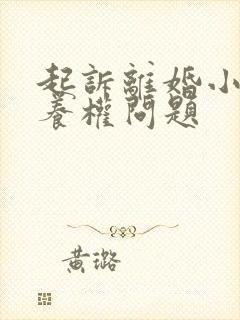 起訴離婚小
養權問題
黃璐